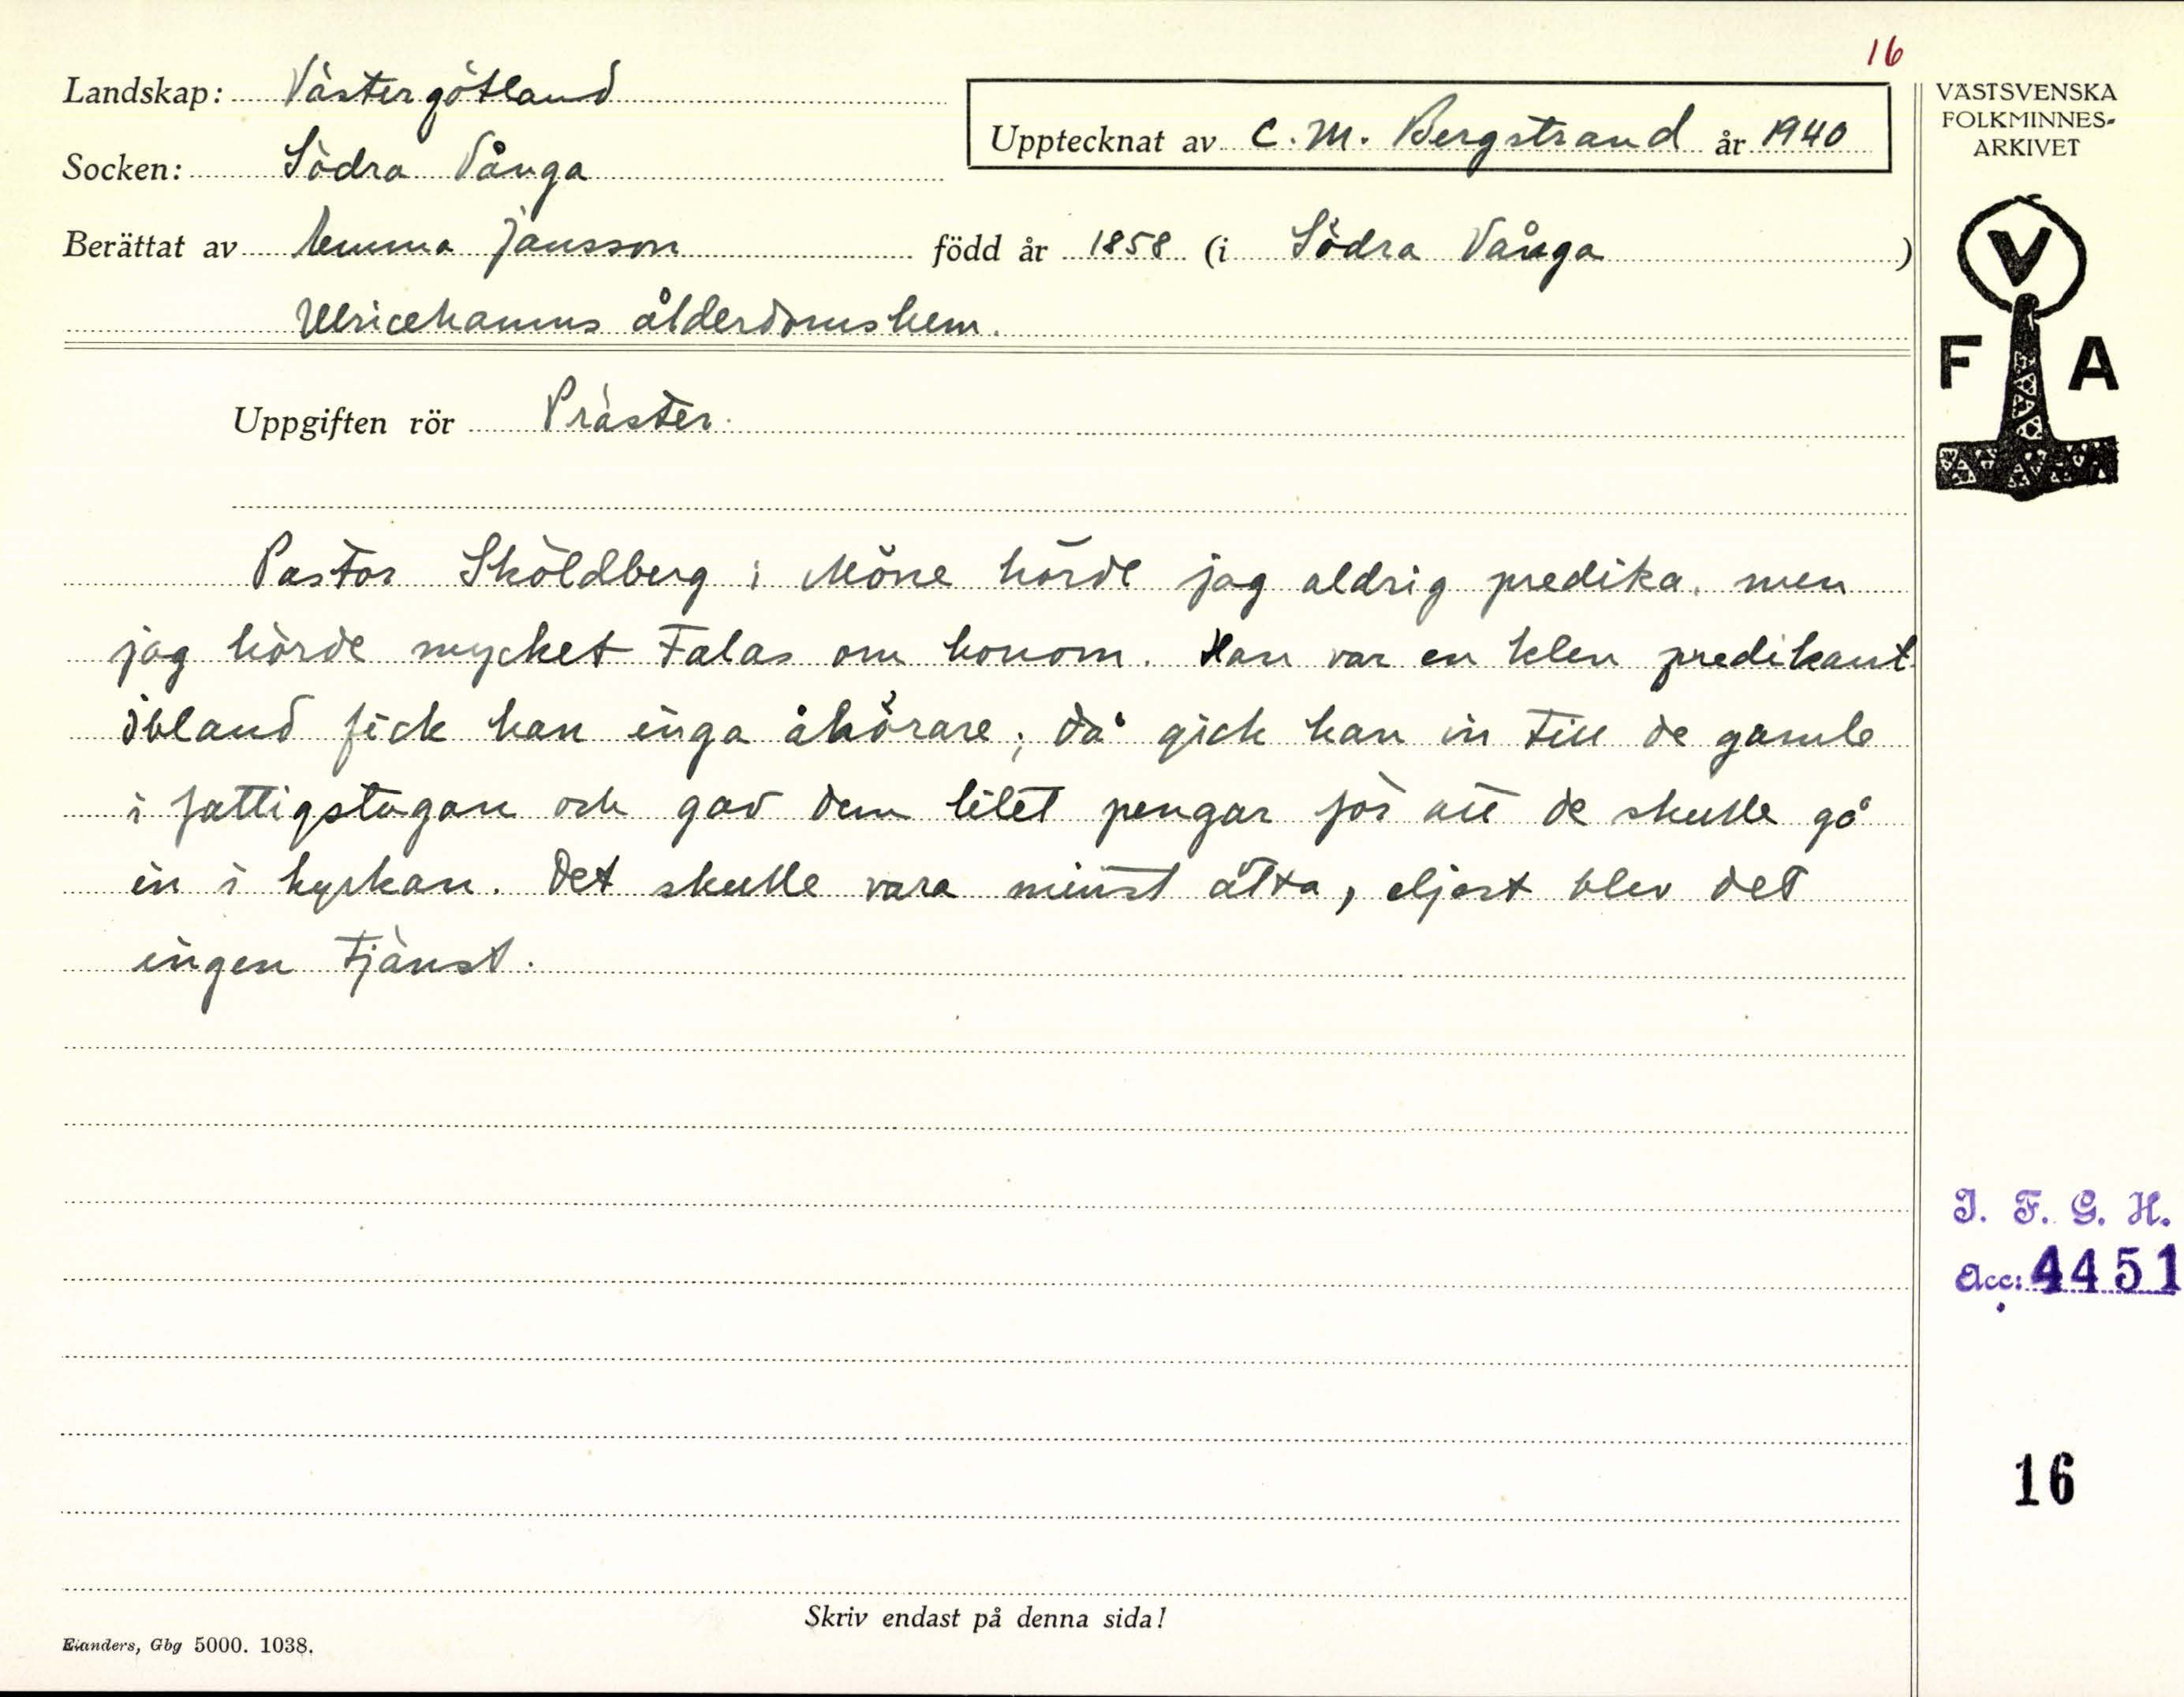 16
Landskap: Västergötland
Upptecknat av C. M. Bergstrand år 1940
VÄSTSVENSKA
FOLKMINNES-
ARKIVET
Socken: Södra Vånga
Berättat av Emma Jansson född år 1858 (i Södra Vånga )
Ulricehamns ålderdomshem.
V
F A
Uppgiften rör Präster.
Pastor Sköldberg i Möne hörde jag aldrig predika, men
jag hörde mycket talas om honom. Han var en klen predikant.
Ibland fick han inga åhörare; då gick han in till de gamle
i fattigstugan och gav dem litet pengar för att de skulle gå
in i kyrkan. Det skulle vara minst åtta, eljest blev det
ingen tjänst.
I. F. G. H.
Acc: 4451
16
Skriv endast på denna sida!
Elanders, Gbg 5000. 1038.